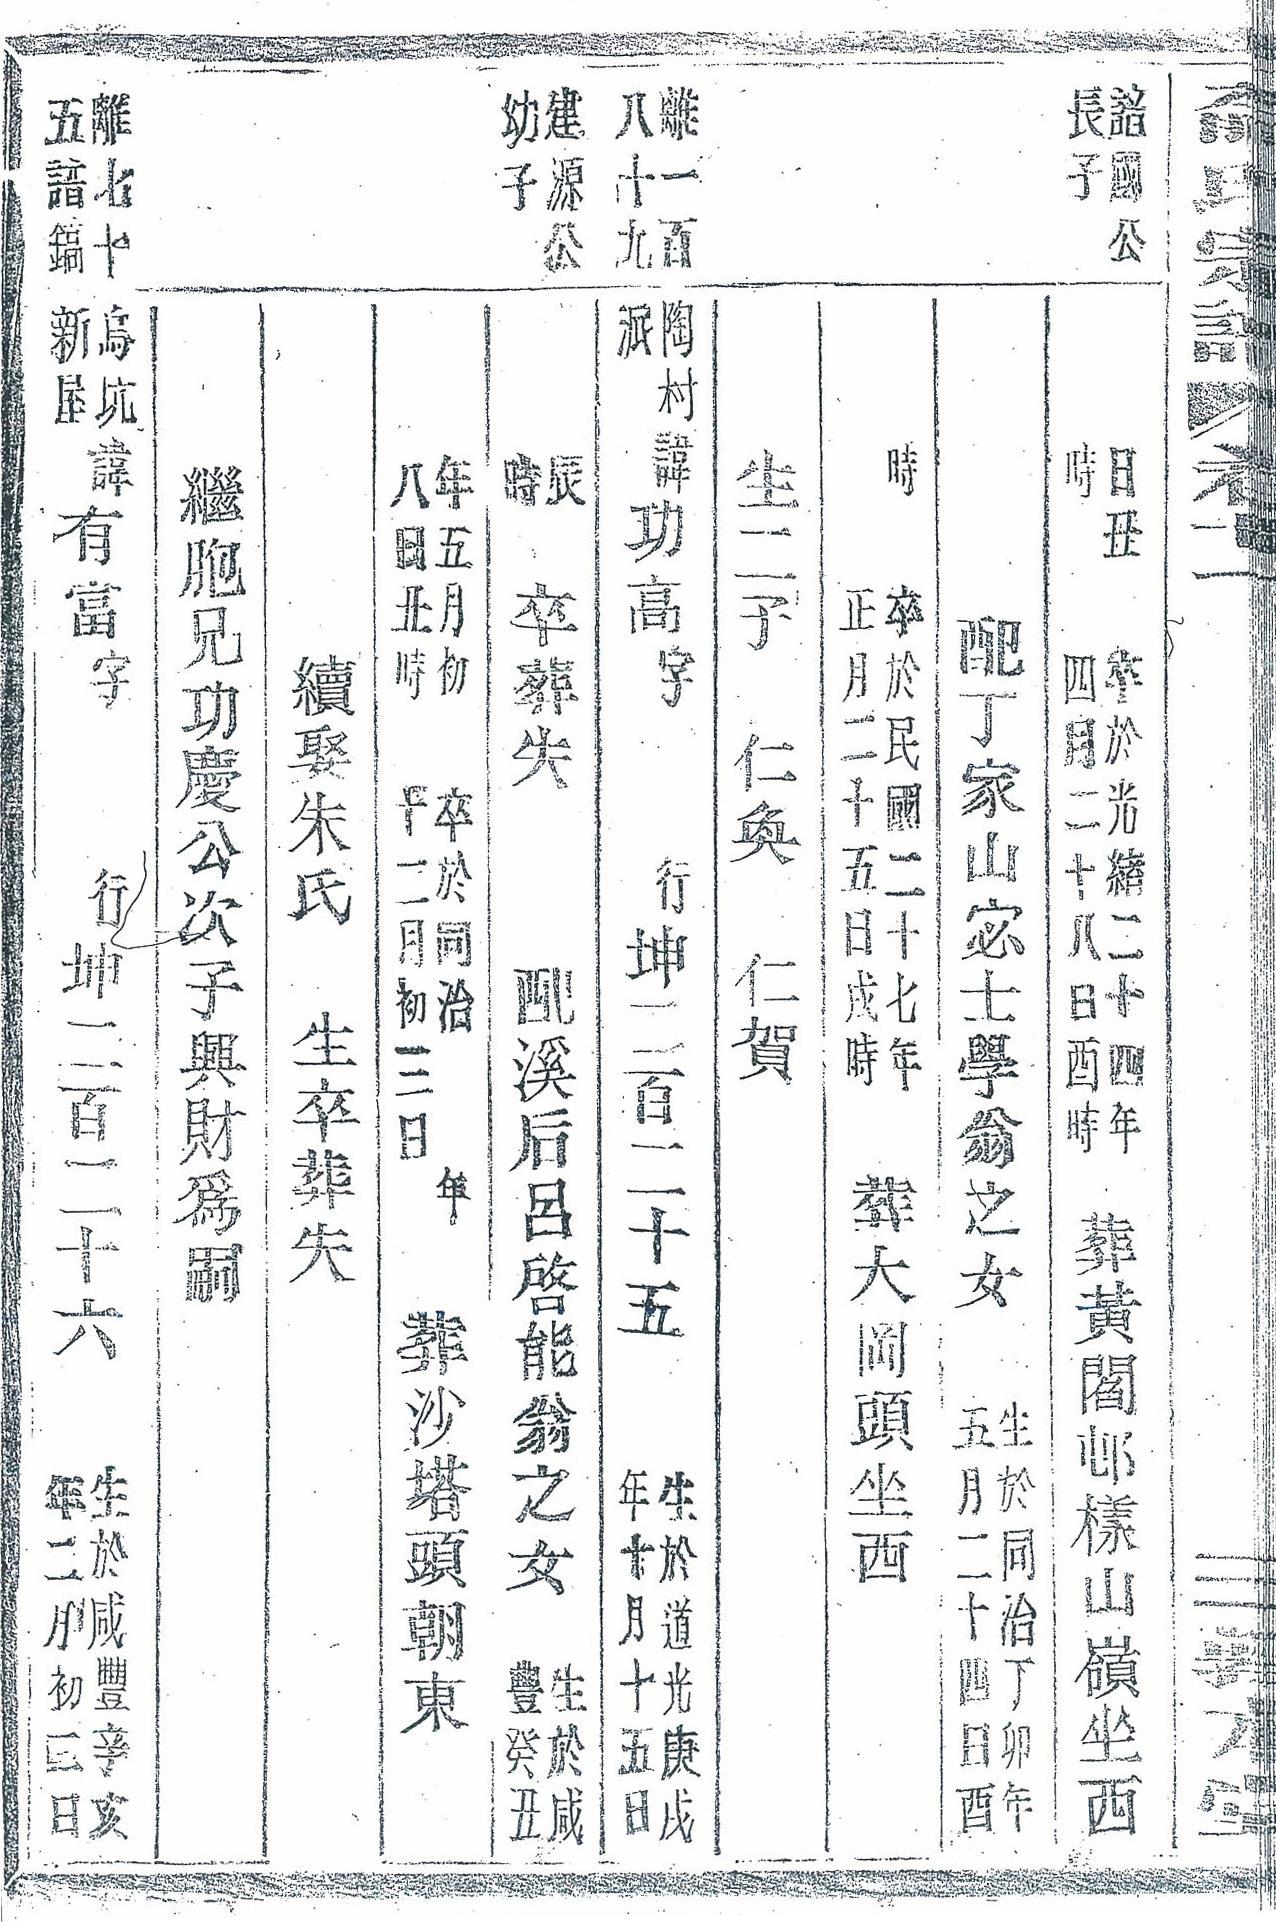 氏宗譜 卷二
諮國公
長子
日丑
時
卒於光緒二十四年
四月二十八日酉時
葬黃閣邨樣山嶺坐西
配丁家山宓士學翁之女
生於同治丁卯年
五月二十四日酉
時
卒於民國二十七年
正月二十五日戌時
葬大岡頭坐西
生二子 仁奐 仁賀
離一百
八十九
陶村
派
諱功高字
行坤二百二十五
生於道光庚戌
年十月十五日
建源公
幼子
辰
時
卒葬失
配溪后呂啓能翁之女
生於咸
豐癸丑
年五月初
八日丑時
卒於同治 年
十二月初三日
葬沙塔頭朝東
續娶朱氏 生卒葬失
繼胞兄功慶公次子興財爲嗣
離七十
五諳鎬
烏坑
新屋
諱有富字
行坤二百二十六
生於咸豐辛亥
年二月初三日